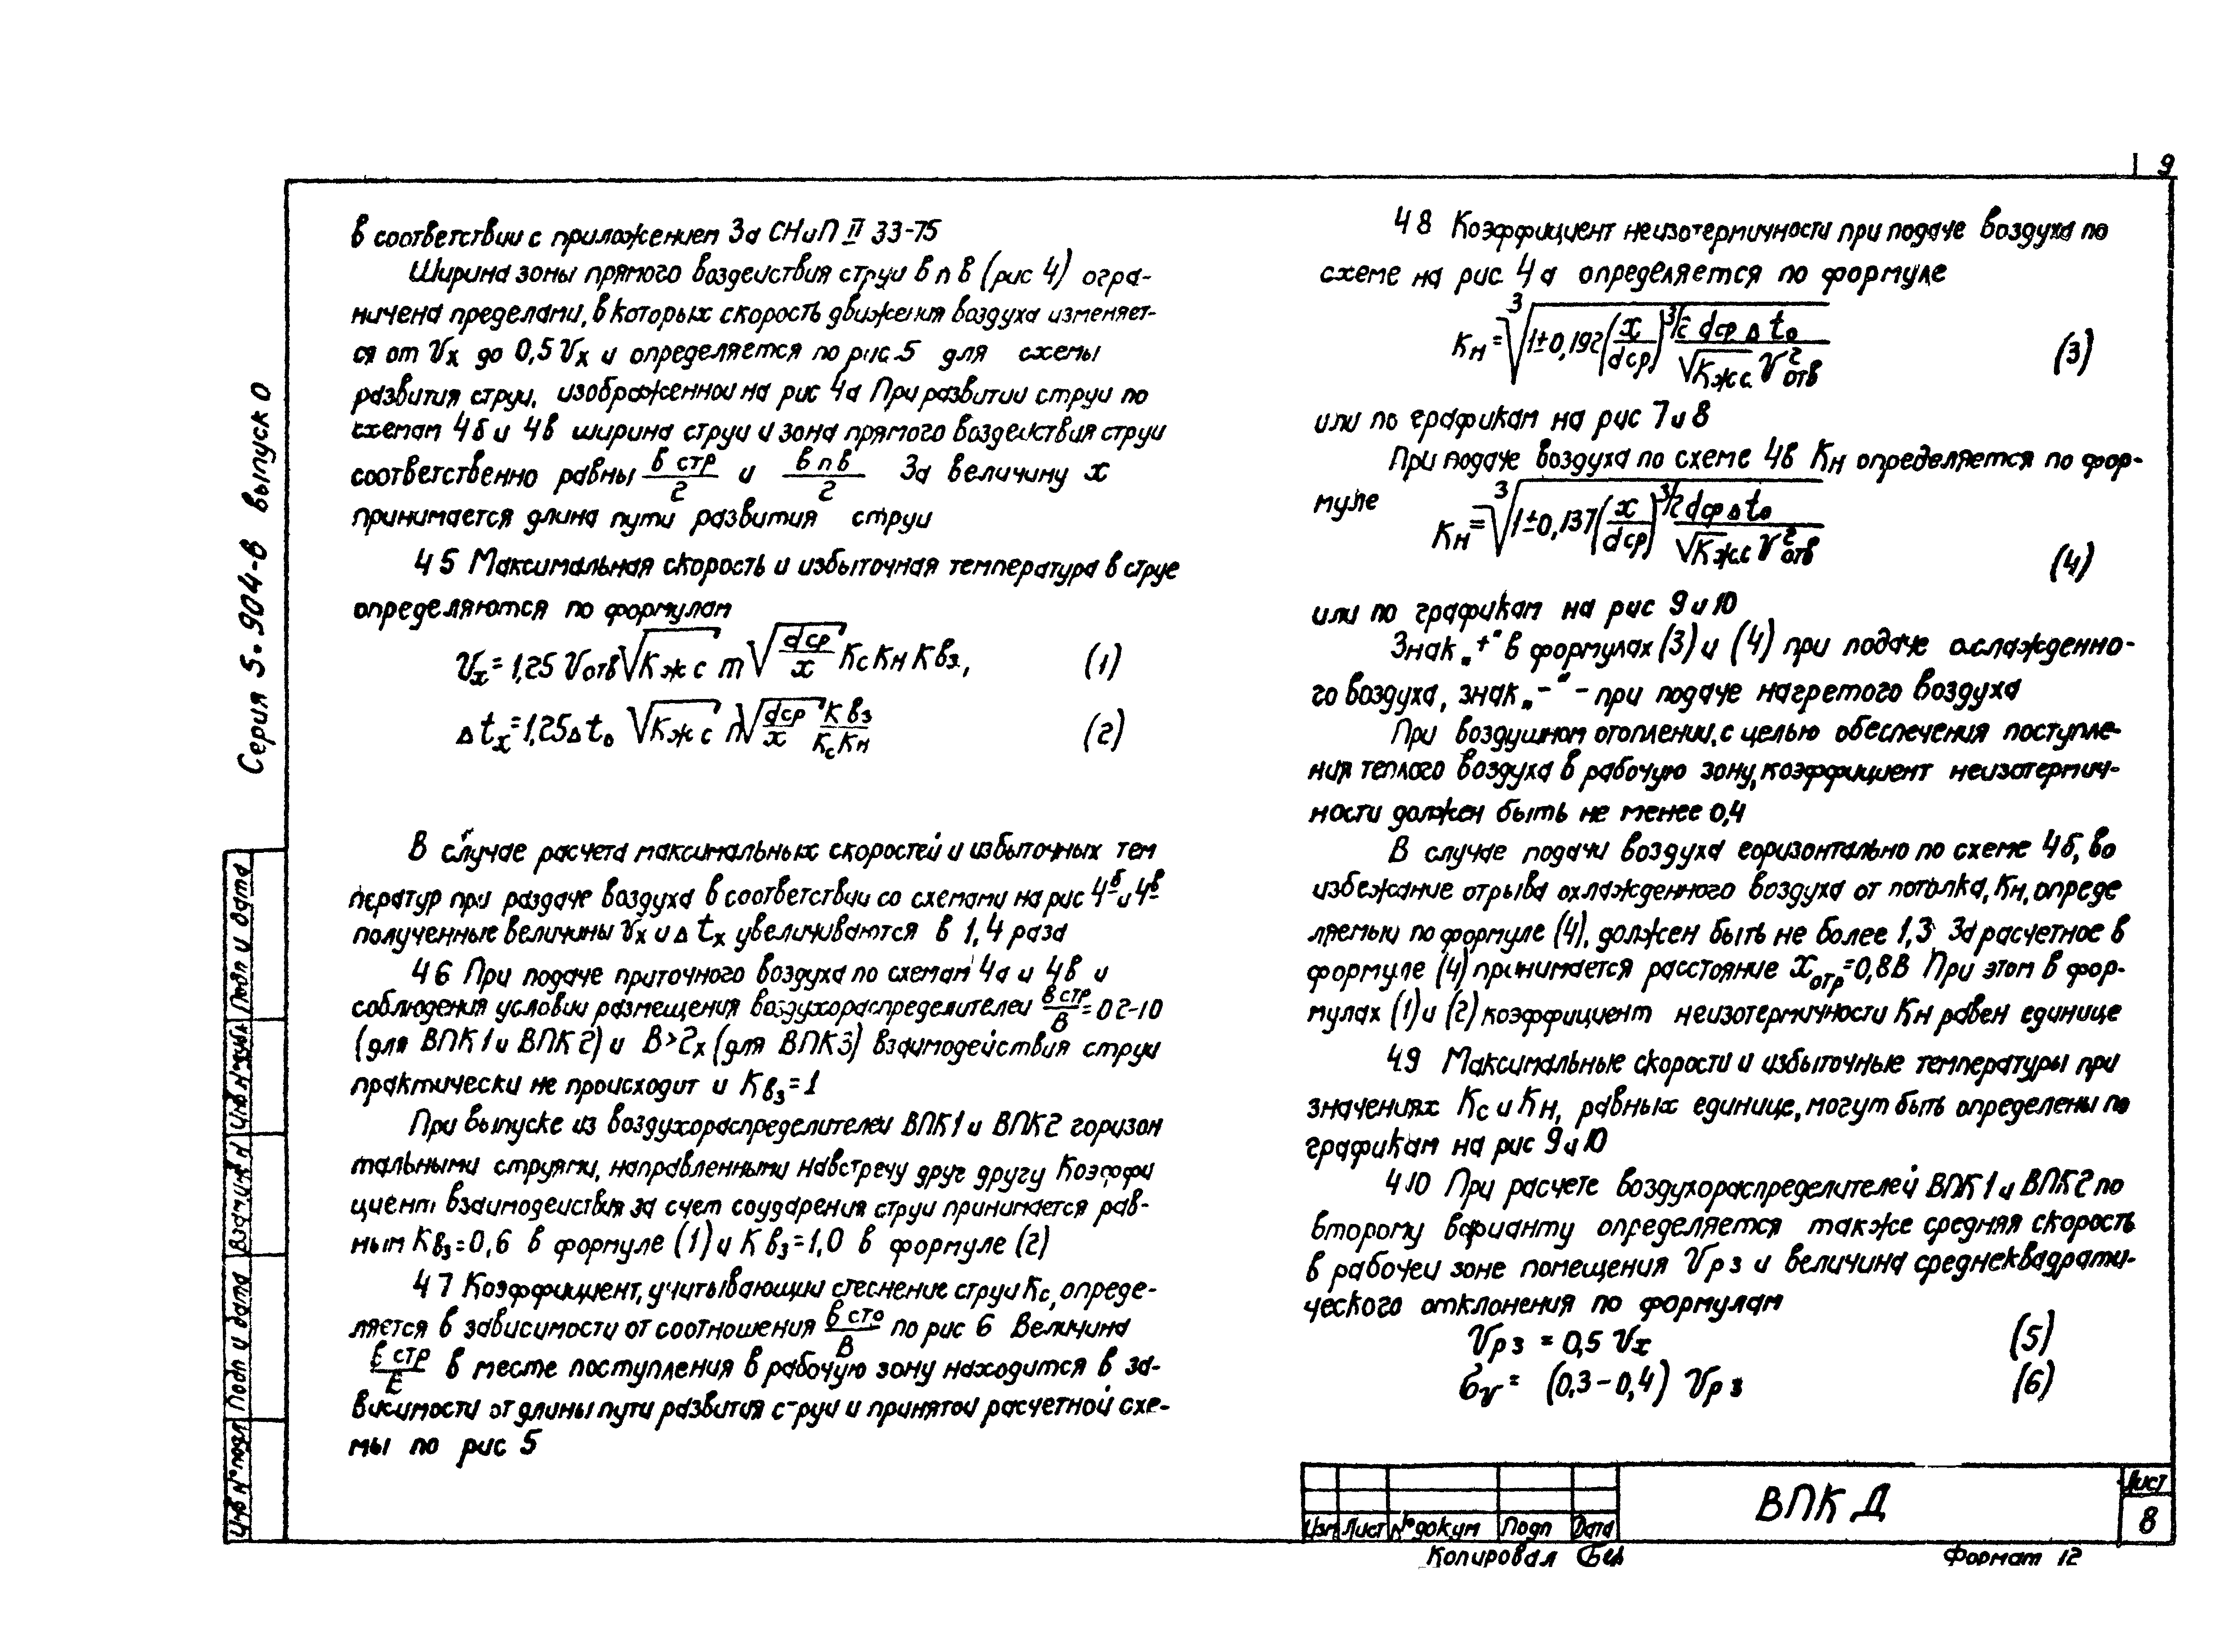 9
в соответствии с приложением 3а СНиП II 33-75
Ширина зоны прямого воздействия струи в п в (рис 4) огра-
ничена пределами, в которых скорость движения воздуха изменяет-
ся от Vx до 0,5 Vx и определяется по рис.5 для схемы
развития струи, изображенной на рис 4а При развитии струи по
схемам 4б и 4в ширина струи и зона прямого воздействия струи
соответственно равны в стр/2 и в п в/2 За величину x
принимается длина пути развития струи
4 5 Максимальная скорость и избыточная температура в струе
определяются по формулам
Vx = 1,25 Vотв √Кжс m √(dср/x) Кс Кн Квз, (1)
Δtx = 1,25Δto √Кжс n √(dср/x) Квз/(Кс Кн) (2)
В случае расчета максимальных скоростей и избыточных тем
ператур при раздаче воздуха в соответствии со схемами на рис 4б и 4в
полученные величины Vx и Δtx увеличиваются в 1,4 раза
4 6 При подаче приточного воздуха по схемам 4а и 4в и
соблюдения условии размещения воздухораспределителеи в стр/В = 0 2-10
(для ВПК1 и ВПК2) и В>2x (для ВПК3) взаимодействия струи
практически не происходит и Квз = 1
При выпуске из воздухораспределителеи ВПК1 и ВПК2 горизон
тальными струями, направленными навстречу друг другу Коэффи
циент взаимодеиствия за счет соударения струи принимается рав-
ным Квз = 0,6 в формуле (1) и Квз = 1,0 в формуле (2)
4 7 Коэффициент, учитывающии стеснение струи Кс, опреде-
ляется в зависимости от соотношения в стр/В по рис 6 Величина
в стр/В в месте поступления в рабочую зону находится в за-
висимости от длины пути развития струи и принятои расчетной схе-
мы по рис 5
4 8 Коэффициент неизотермичности при подаче воздуха по
схеме на рис 4а определяется по формуле
Кн = ∛(1±0,192(x/dср)^3/2 dср Δto/(√Кжс V²отв)) (3)
или по графикам на рис 7 и 8
При подаче воздуха по схеме 4в Кн определяется по фор-
муле
Кн = ∛(1±0,137(x/dср)^3/2 dср Δto/(√Кжс V²отв)) (4)
или по графикам на рис 9 и 10
Знак „+" в формулах (3) и (4) при подаче охлажденно-
го воздуха, знак „-" - при подаче нагретого воздуха
При воздушном отоплении, с целью обеспечения поступле-
ния теплого воздуха в рабочую зону, коэффициент неизотермич-
ности должен быть не менее 0,4
В случае подачи воздуха горизонтально по схеме 4б, во
избежание отрыва охлажденного воздуха от потолка, Кн, опреде
ляемыи по формуле (4), должен быть не более 1,3 За расчетное в
формуле (4) принимается расстояние Xотр = 0,8В При этом в фор-
мулах (1) и (2) коэффициент неизотермичности Кн равен единице
4.9 Максимальные скорости и избыточные температуры при
значениях Кс и Кн, равных единице, могут быть определены по
графикам на рис 9 и 10
4.10 При расчете воздухораспределителей ВПК1 и ВПК2 по
второму варианту определяется также средняя скорость
в рабочеи зоне помещения Vрз и величина среднеквадрати-
ческого отклонения по формулам
Vрз = 0,5 Vx (5)
бv = (0,3-0,4) Vрз (6)
Серия 5.904-В выпуск 0
Подп и дата
Инв N дубл
Взам инв N
Подп и дата
Инв N°подл
Изм Лист N° докум Подп Дата
ВПК Д
Лист
8
Копировал
Формат 12